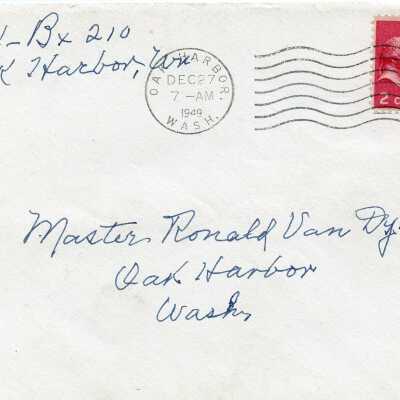 Bx 210
Harbor, Wn
OAK HARBOR,
DEC 27
7-AM
1949
WASH.
2
Master Ronald Van Dy
Oak Harbor
Wash,